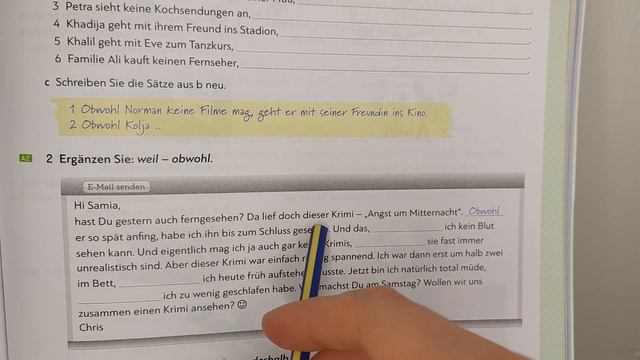 3 Petra sieht keine Kochsendungen an,
4 Khadija geht mit ihrem Freund ins Stadion,
5 Khalil geht mit Eve zum Tanzkurs,
6 Familie Ali kauft keinen Fernseher,
c Schreiben Sie die Sätze aus b neu.
1 Obwohl Norman keine Filme mag, geht er mit seiner Freundin ins Kino.
2 Obwohl Kolja ...
A2 2 Ergänzen Sie: weil – obwohl.
E-Mail senden
Hi Samia,
hast Du gestern auch ferngesehen? Da lief doch dieser Krimi – „Angst um Mitternacht“. Obwohl
er so spät anfing, habe ich ihn bis zum Schluss Und das, ich kein Blut
sehen kann. Und eigentlich mag ich ja auch gar Krimis, sie fast immer
unrealistisch sind. Aber dieser Krimi war einfach spannend. Ich war dann erst um halb zwei
im Bett, ich heute früh Jetzt bin ich natürlich total müde,
ich zu wenig geschlafen habe. machst Du am Samstag? Wollen wir uns
zusammen einen Krimi ansehen? ☺
Chris